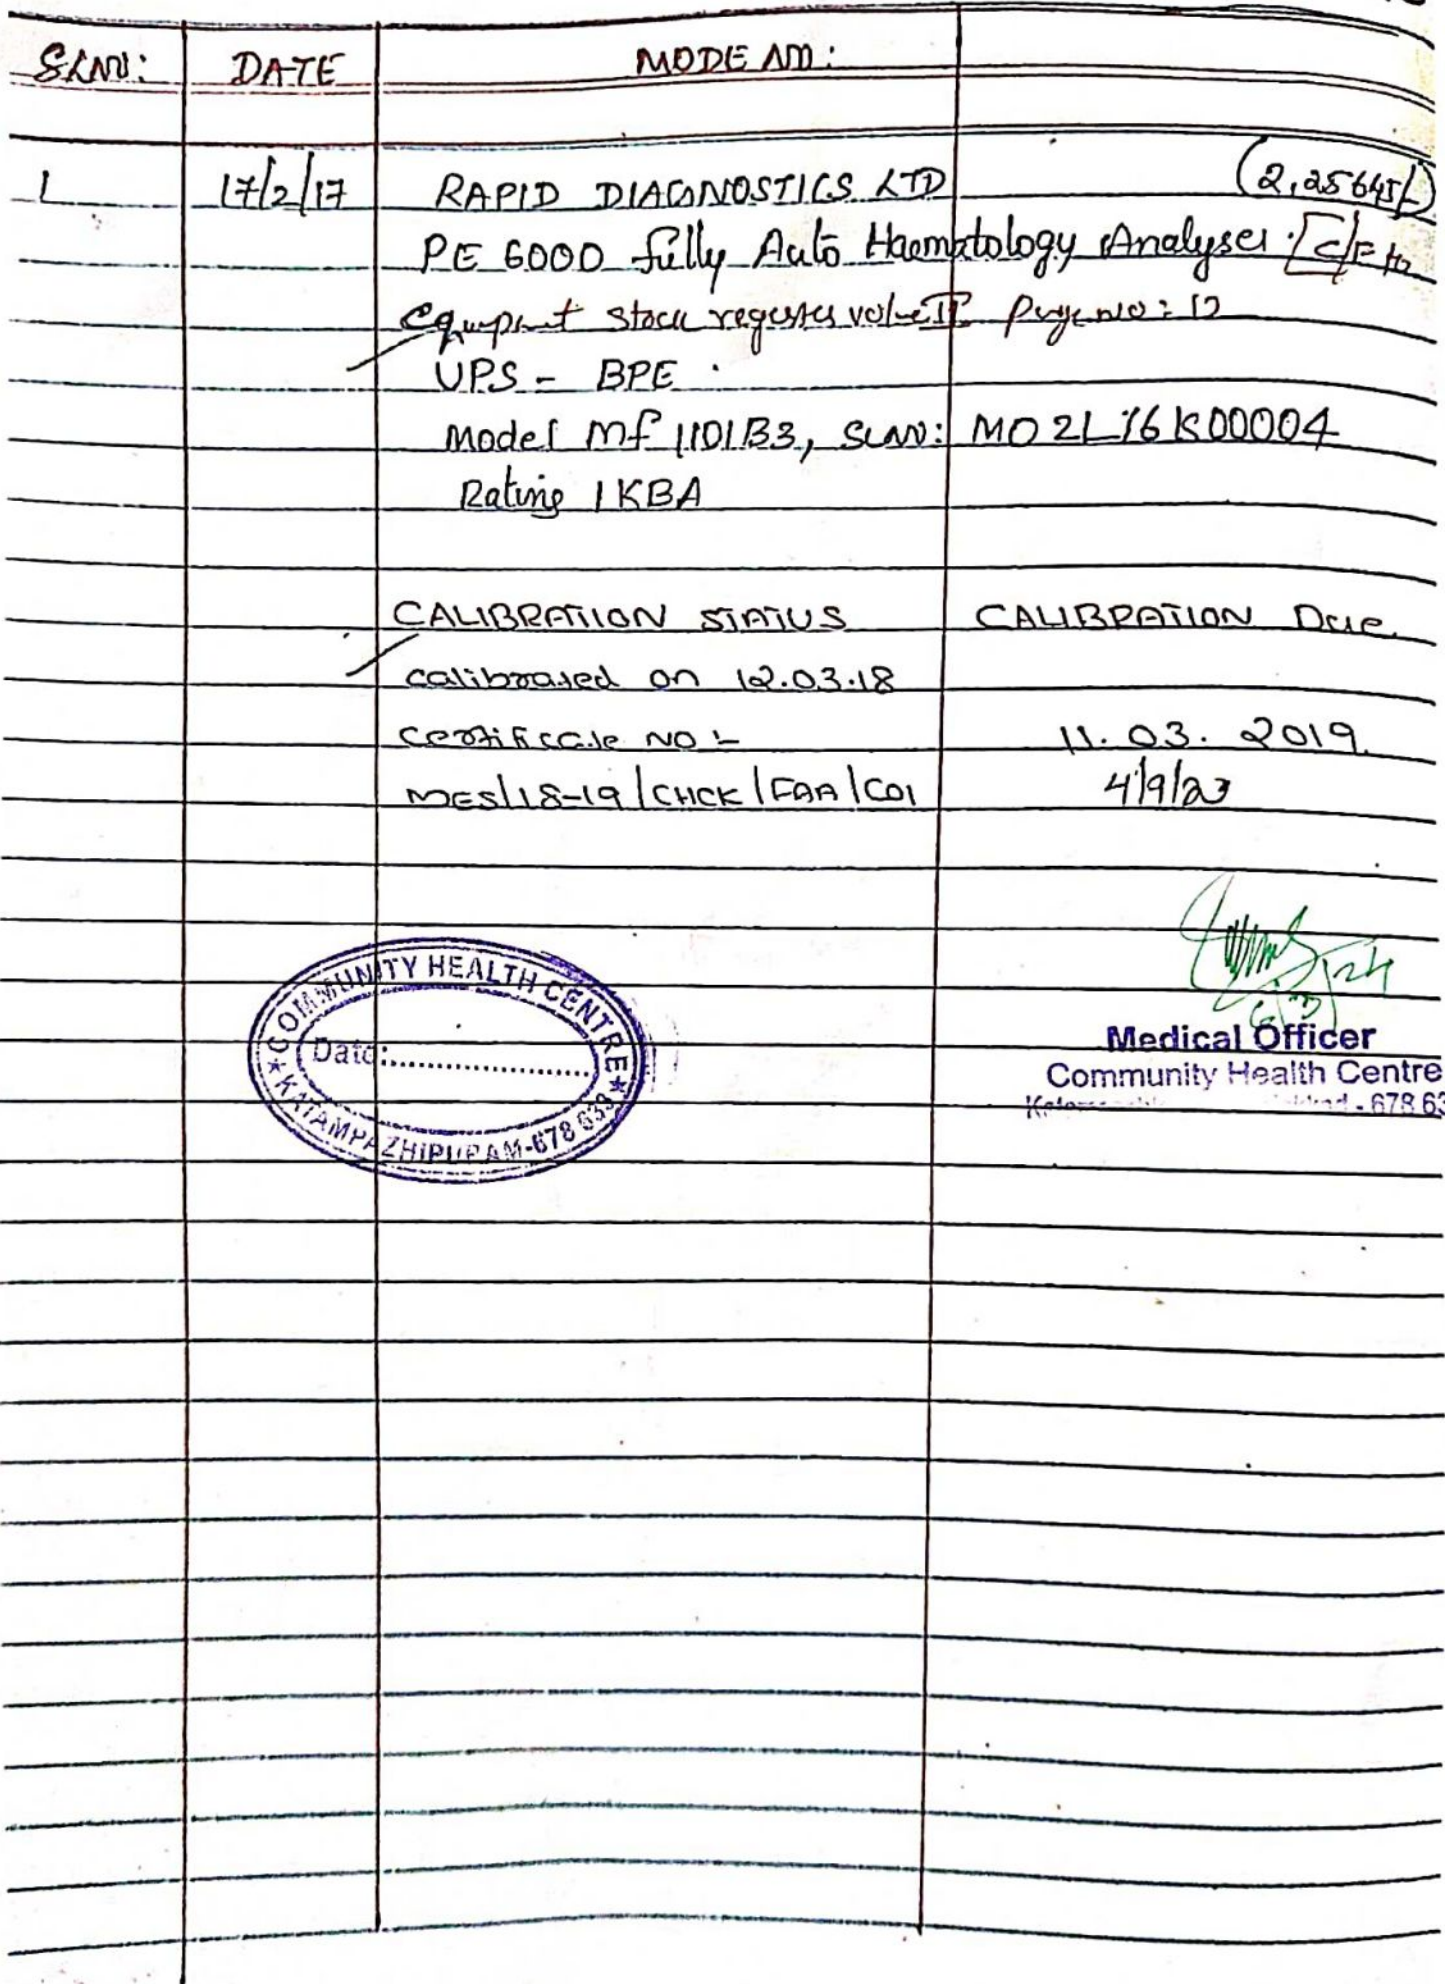 Sl.NO: DATE MODE NO:
1 17/2/17 RAPID DIAGNOSTICS LTD (2,25645/-)
PE 6000 fully Auto Haematology Analyser [C/F to
Equipment stock register volume II Page no: 12
UPS - BPE
Model Mf 1101B3, Sl.NO: MO2L16K00004
Rating 1KBA
CALIBRATION STATUS CALIBRATION Due
calibrated on 12.03.18
Certificate NO:- 11.03.2019
MES/18-19/CHCK/FAA/C01 4/9/23
COMMUNITY HEALTH CENTRE
Date:....................
KATAMPAZHIPURAM-678 633
6/3/24
Medical Officer
Community Health Centre
- 678 63